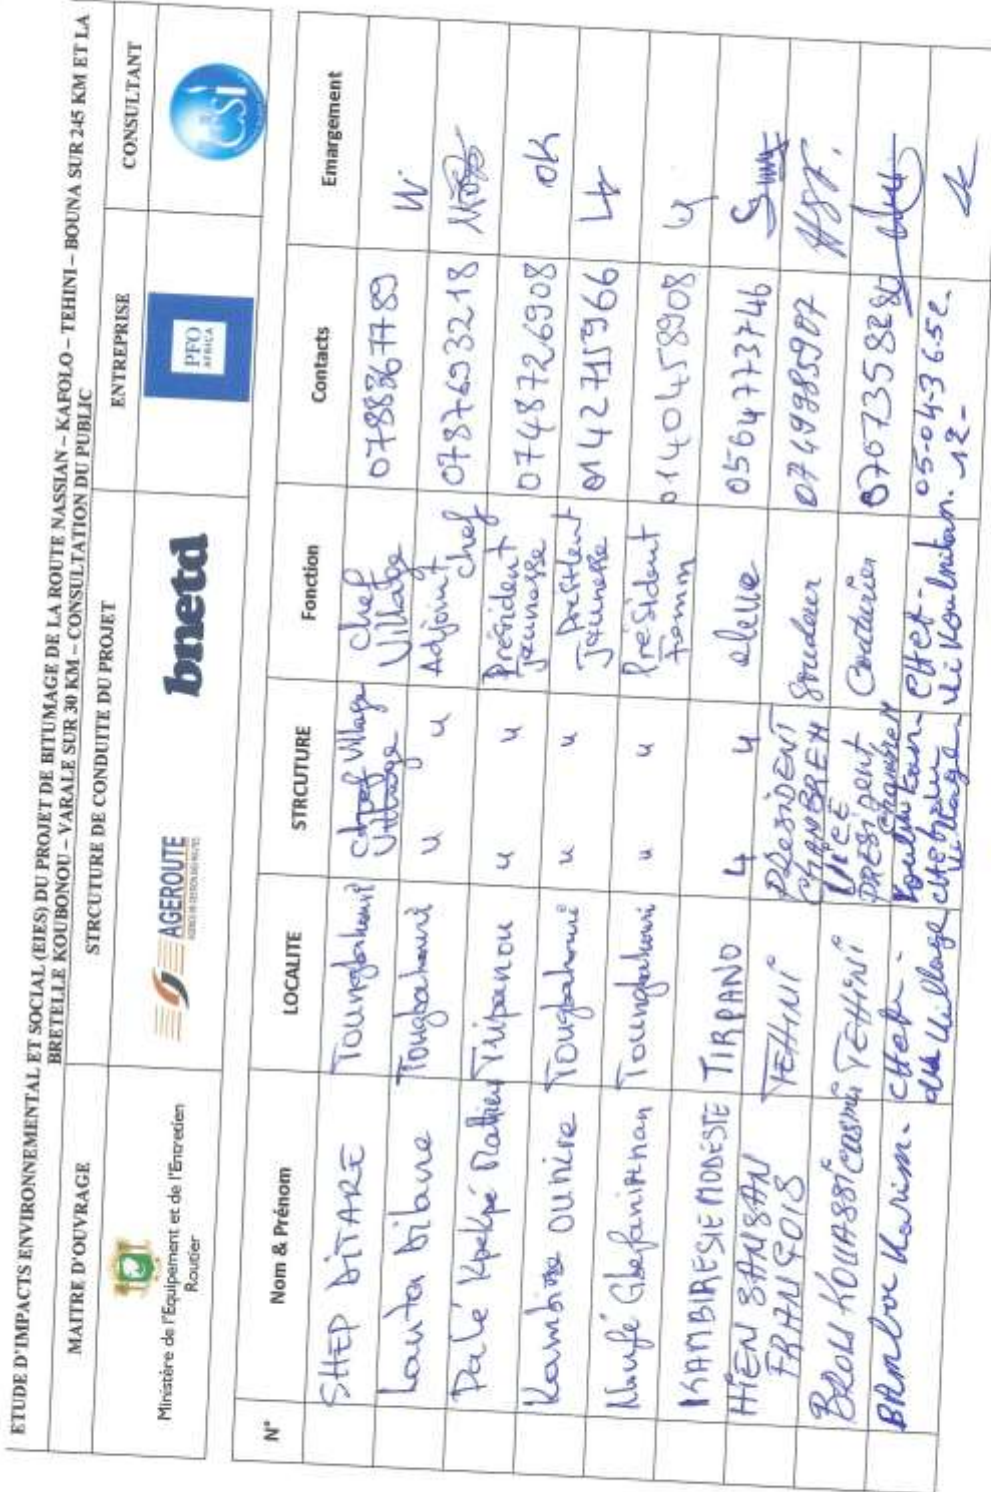 ETUDE D'IMPACTS ENVIRONNEMENTAL ET SOCIAL (EIES) DU PROJET DE BITUMAGE DE LA ROUTE NASSIAN – KAFOLO – TEHINI – BOUNA SUR 245 KM ET LA
BRETELLE KOUBONOU – VARALE SUR 30 KM – CONSULTATION DU PUBLIC
MAITRE D'OUVRAGE STRCUTURE DE CONDUITE DU PROJET ENTREPRISE CONSULTANT
Ministère de l'Equipement et de l'Entretien
Routier
AGEROUTE
bnetd
PFO
AFRICA
N° Nom & Prénom LOCALITE STRCUTURE Fonction Contacts Emargement
SHEP DiTARE chef Village chef Village 0788367789
Lanta Dibare Tougbakouri u u Adjoint chef 0787693218
Palé Kpekpé Mathieu Tiripanou u u Président jeunesse 0748726908 OK
Kambire Ounire Tougbakouri u u President Jeunesse 0142715966
u u Président Femm 0140458908
KAMBIRE SIE MODESTE TIRPANO 4 4 eleve 0564773746
HIEN SANSAN FRANÇOIS TEHINI PRESIDENT CHAMBREH Soudeur 0749985907 HSF.
BROU KOUASSI TEHINI VICE PRESIDENT Couturier 0707358280
BAMBA Karim. chef du village village 05-04-36-52-12-